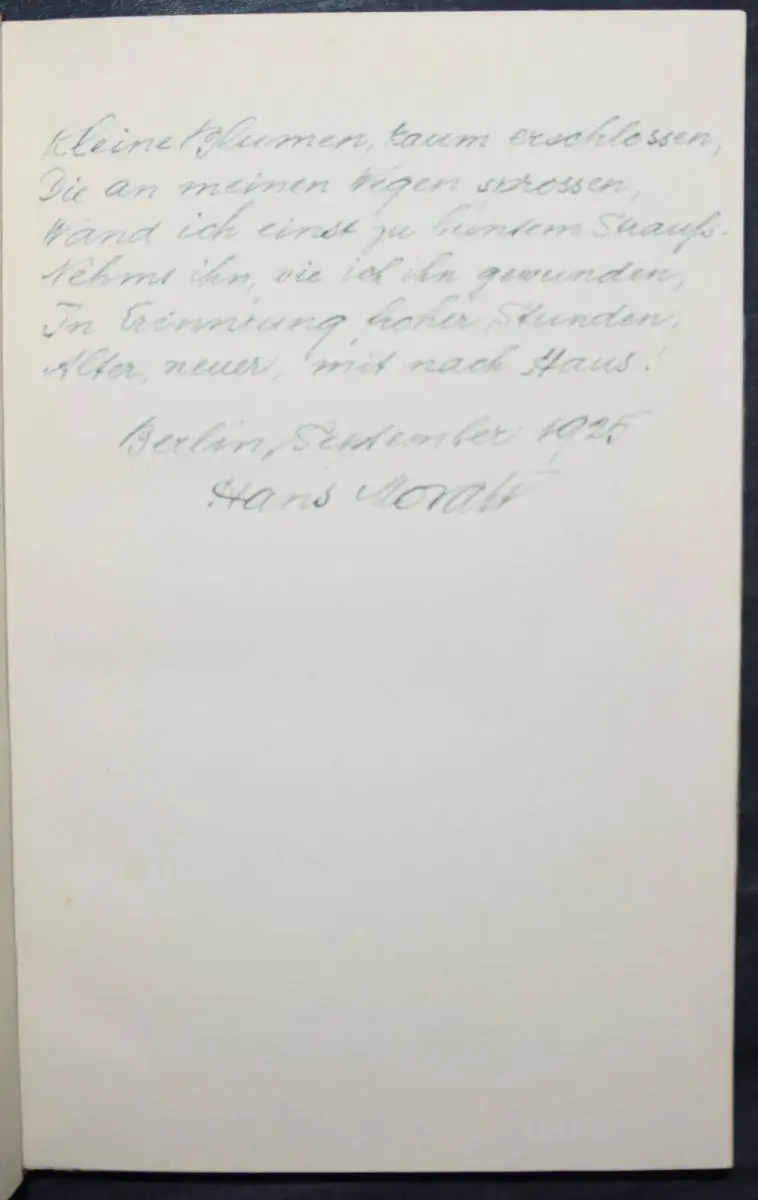 Kleine Blumen, kaum erschlossen,
Die an meinen Wegen sprossen,
Wand ich einst zu buntem Strauß.
Nehmt ihn, wie ich ihn gewunden,
In Erinnrung froher Stunden,
Alter, neuer, mit nach Haus!
Berlin, September 1925
Hans